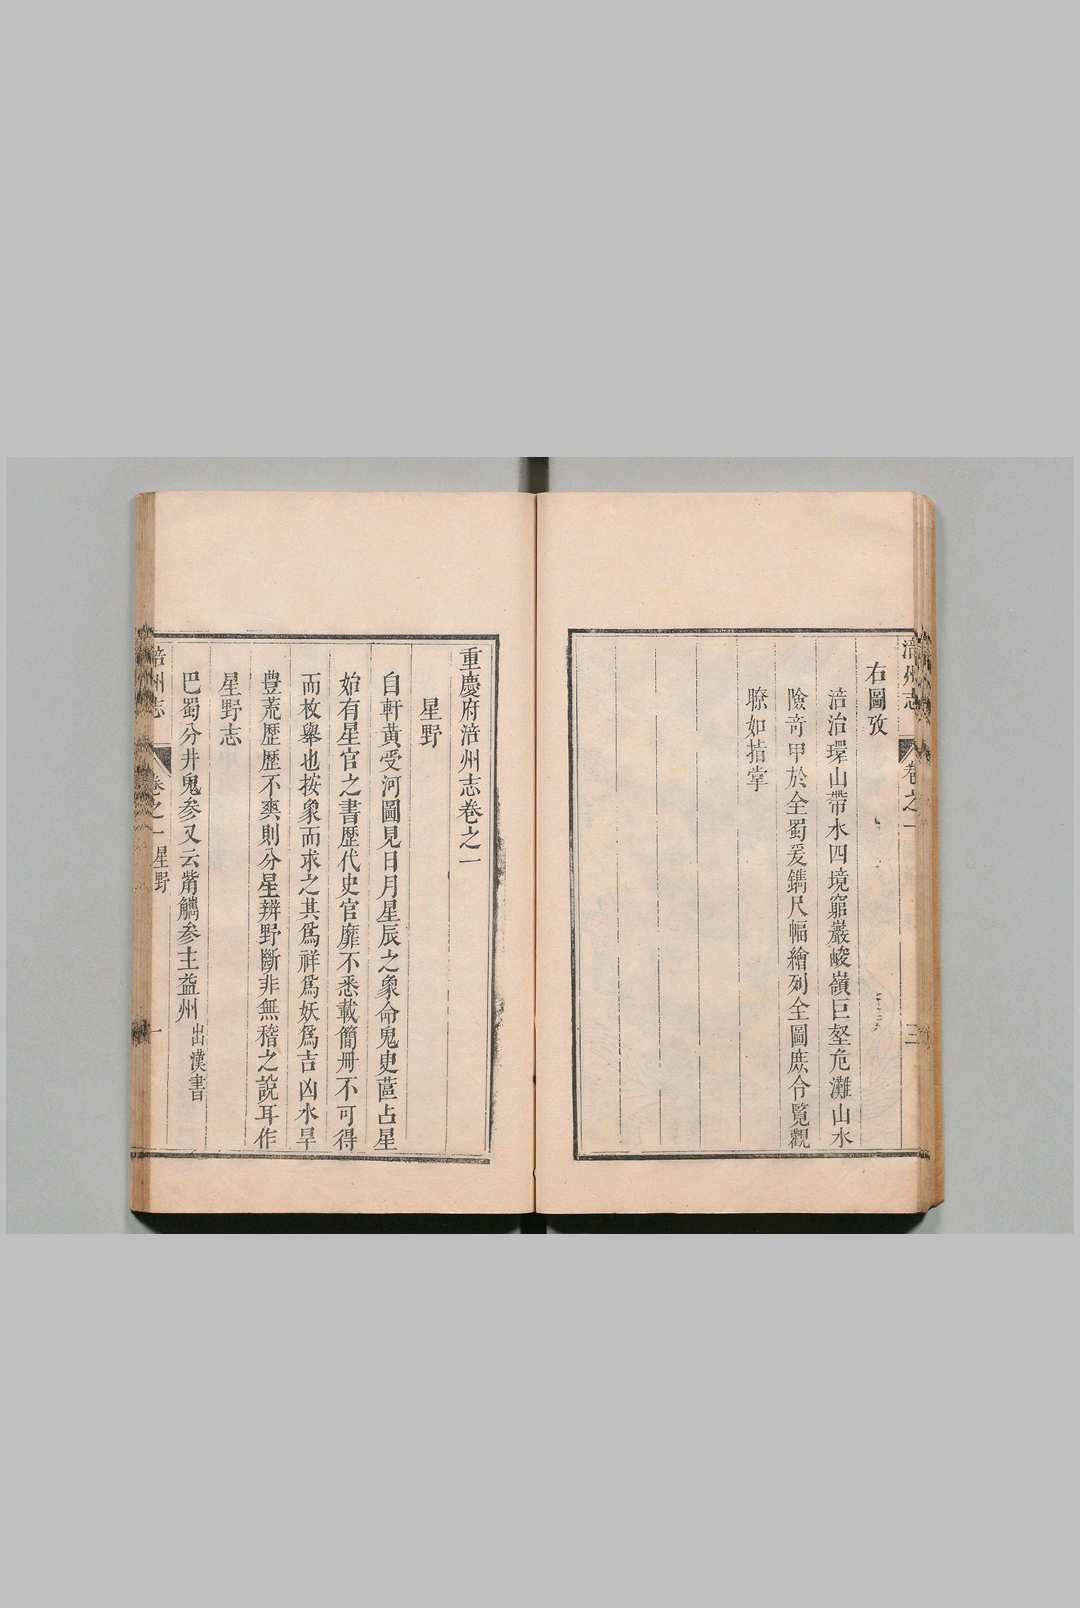 涪州志
卷之一
三
右圖攷
涪治環山帶水四境窮巖峻嶺巨壑危灘山水
險竒甲於全蜀爰鐫尺幅繪列全圖庶令覽觀
瞭如指掌
重慶府涪州志卷之一
星野
自軒黃受河圖見日月星辰之象命鬼史蓲占星
始有星官之書歷代史官靡不悉載簡册不可得
而枚舉也按象而求之其爲祥爲妖爲吉凶水旱
豊荒歷歷不爽則分星辨野斷非無稽之說耳作
星野志
巴蜀分井鬼参又云觜觿参主益州出漢書
涪州志
卷之一星野
一